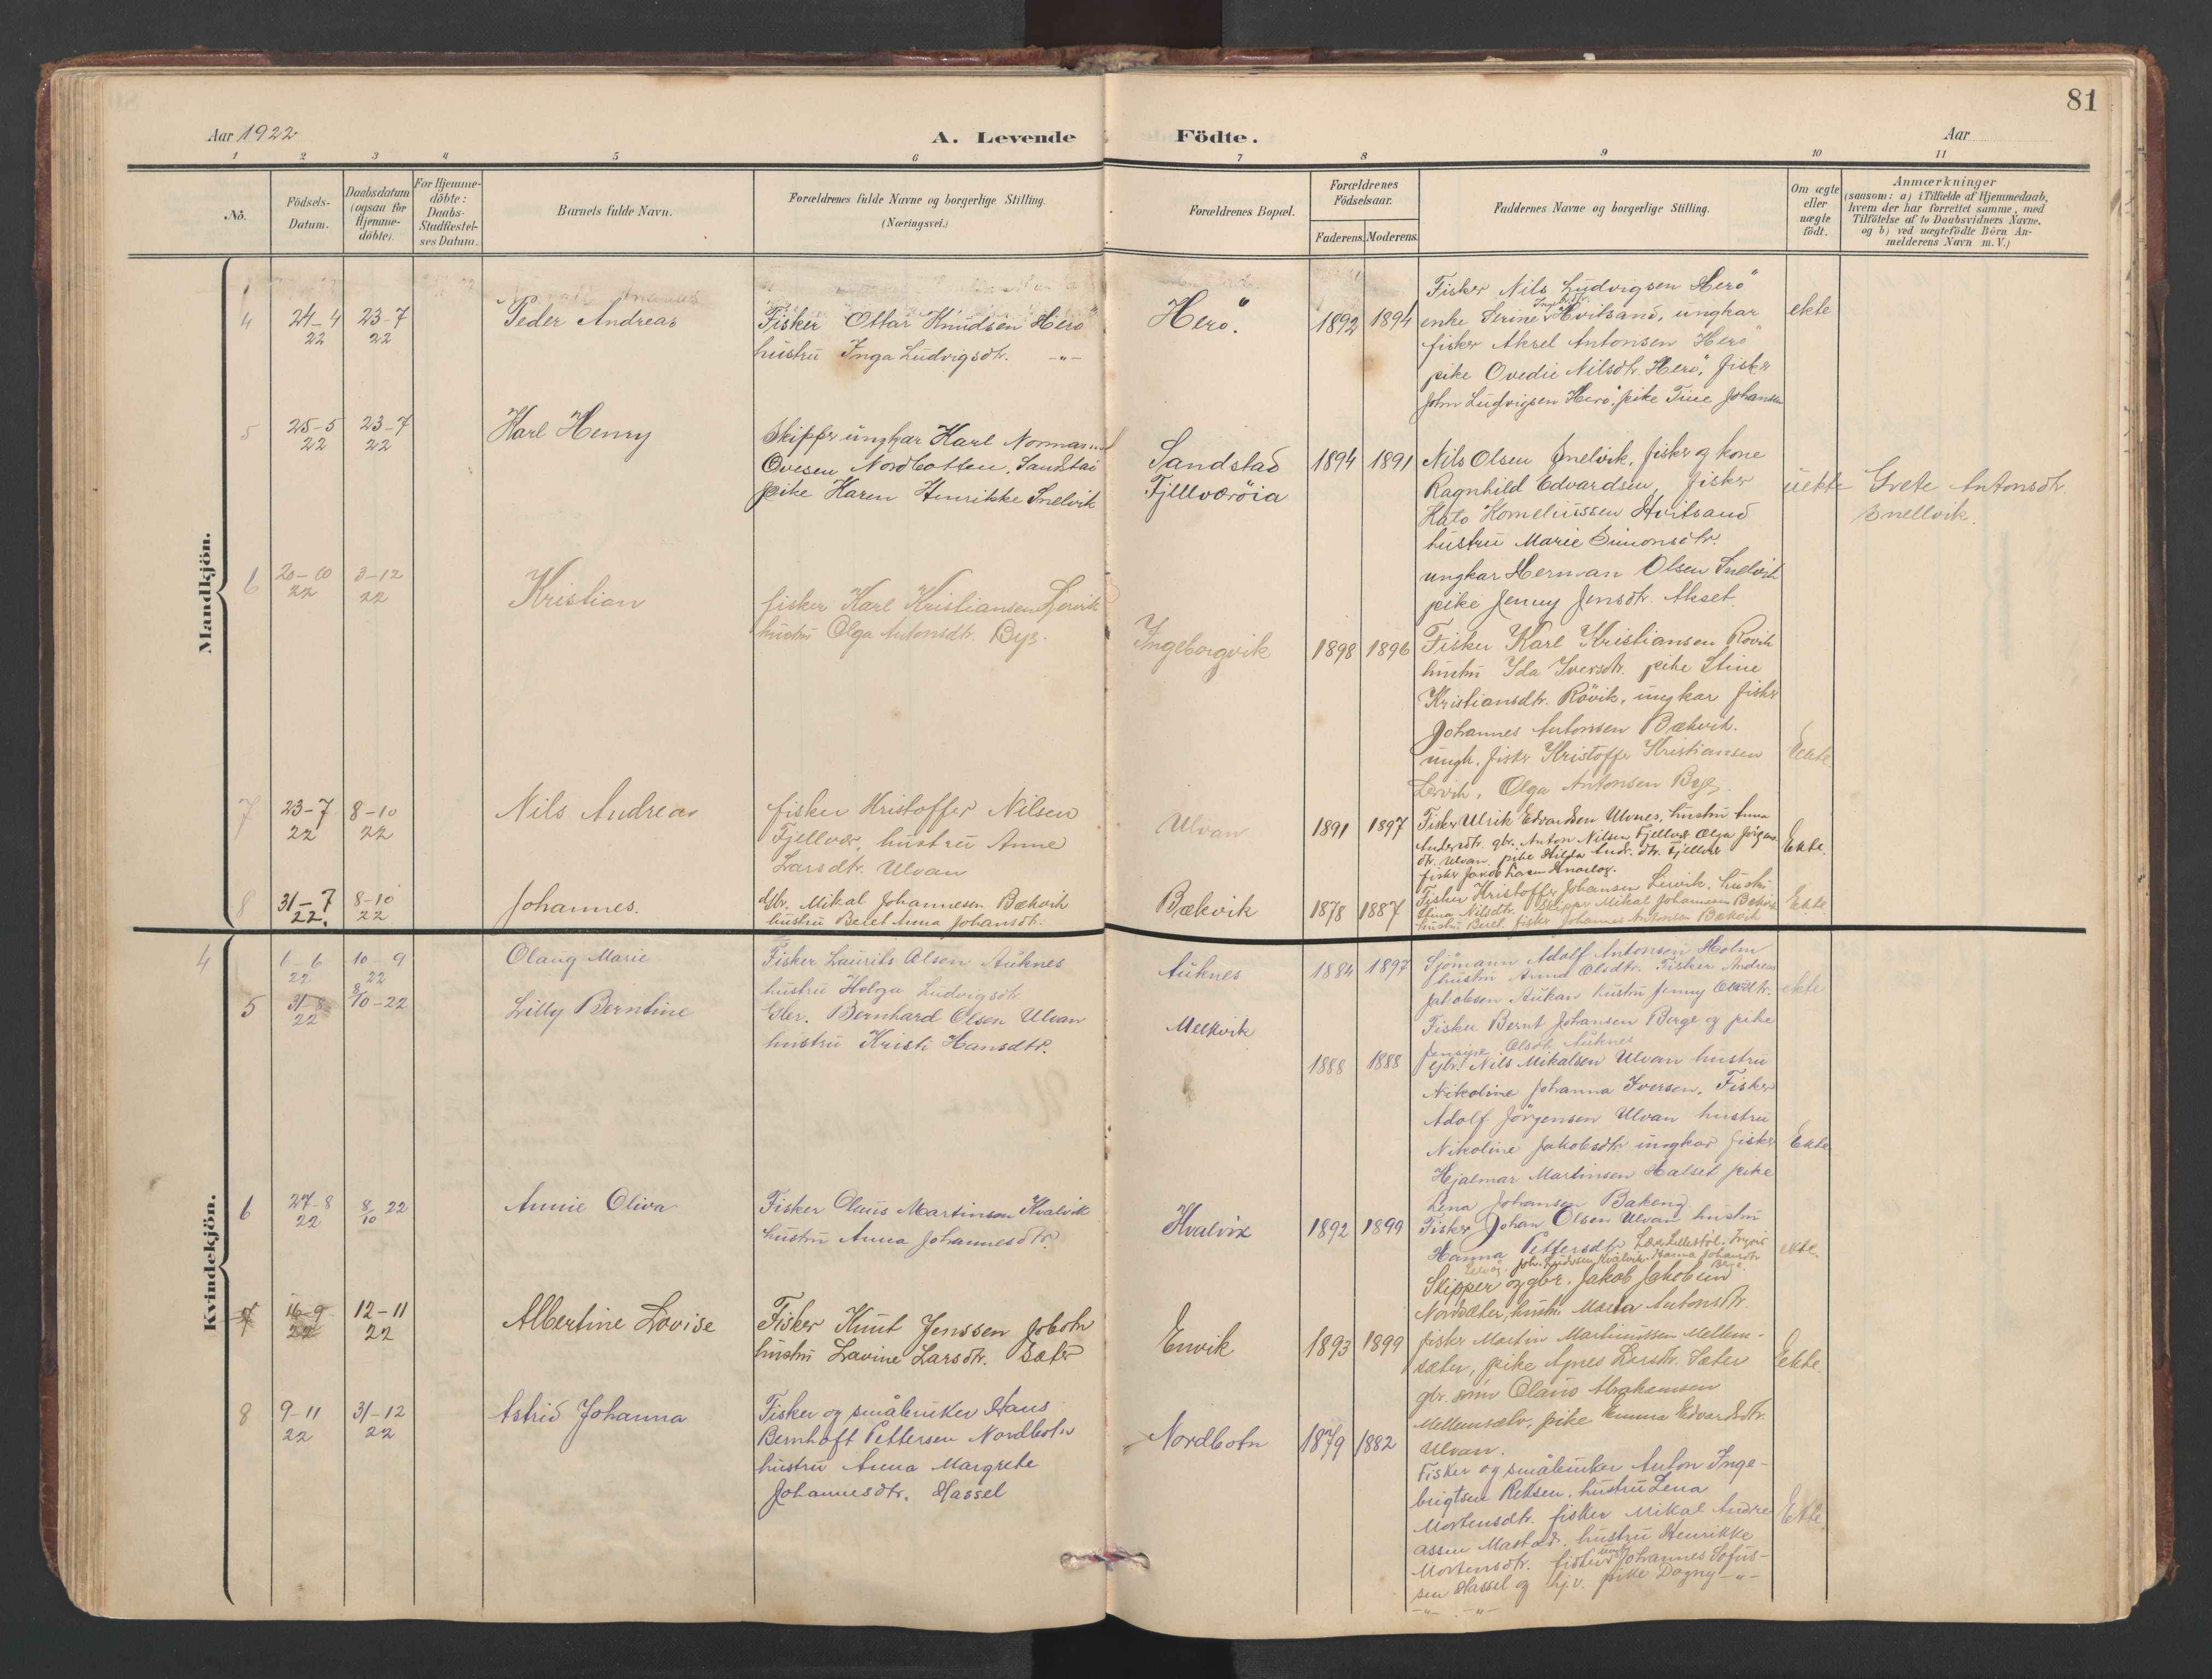 81
Aar 1922
A. Levende Födte.
Aar
1 2 3 4 5 6 7 8 9 10 11
No.
Födsels-
Datum.
Daabsdatum
(ogsaa for
Hjemme-
döbte).
For Hjemme-
döbte:
Daabs-
Stadfæstel-
ses Datum.
Barnets fulde Navn.
Forældrenes fulde Navne og borgerlige Stilling.
(Næringsvei.)
Forældrenes Bopæl.
Forældrenes
Födselsaar.
Faderens. Moderens.
Faddernes Navne og borgerlige Stilling.
Om ægte
eller
uægte
födt.
Anmærkninger
(saasom: a) i Tilfælde af Hjemmedaab,
hvem der har forrettet samme, med
Tilföielse af to Daabsvidners Navne,
og b) ved uægtefödte Börn An-
melderens Navn m. V.)
Mandkjön.
4
24-4
22
23-7
22
Peder Andreas
Fisker Ottar Knudsen Herö
hustru Inga Ludvigsdtr. -"-
Herö.
1892 1894
Fisker Nils Ludvigsen Herö
enke Serine Hvitsand, ungkar
fisker Aksel Antonsen Herö
pike Ovedie Nilsdtr. Herö, fisker
John Ludvigsen Herö, pike Tine Johansen
ekte
5
25-5
22
23-7
22
Karl Henry
Skipper ungkar Karl Normann
Ovesen Nordbotten, Sandstad
pike Karen Henrikke Snelvik
Sandstad
Fjellværöia
1894 1891
Nils Olsen Snelvik, fisker og kone
Ragnhild Edvardsen, fisker
Kato Korneliussen Hvitsand
hustru Marie Simonsdtr.
ungkar Herman Olsen Snelvik
pike Jenny Jensdtr. Akset.
uekte
Grete Antonsdtr.
Snellvik.
6
20-10
22
3-12
22
Kristian
fisker Karl Kristiansen Lervik
hustru Olga Antonsdtr. Bye.
Ingeborgvik
1898 1896
Fisker Karl Kristiansen Rövik
hustru Ida Iversdtr. pike Stine
Kristiansdtr. Rövik, ungkar fisker
Johannes Antonsen Bækvik.
ungk. fisker Kristoffer Kristiansen
Lervik, Olga Antonsen Bye.
Ekte
7
23-7
22
8-10
22
Nils Andreas
fisker Kristoffer Nilsen
Fjellvær, hustru Anne
Larsdtr. Ulvan
Ulvan
1891 1897
Fisker Ulrik Edvardsen Ulvnes, hustru Anna
Andersdtr. gbr. Anton Nilsen Fjellvær Olga Jörgens
dtr. Ulvan. pike Hilda Andr. dtr. Fjellvær
fisker Jakob Larsen
Ekte.
8
31-7
22.
8-10
22
Johannes.
Gbr. Mikal Johannesen Bækvik
hustru Beret Anna Johansdtr.
Bækvik
1878 1887
Fisker Kristoffer Johansen Lervik, hustru
Stina Nilsdtr. Skipper Mikal Johannesen Bækvik
hustru Beret. fisker Johannes Antonsen Bækvik
Ekte
Kvindekjön.
4
6-6
22
10-9
22
Olaug Marie
Fisker Laurits Olsen Auknes
hustru Helga Ludvigsdtr.
Auknes
1884 1897
Sjömann Adolf Antonsen Holm
hustru Anna Olsdtr. Fisker Andreas
Jakobsen Aukan hustru Jenny Olsdtr.
Fisker Bernt Johansen Berge og pike
Jensine Olsdt. Auknes
ekte
5
31-8
22
8/10-22
Lilly Berntine
Gbr. Bernhard Olsen Ulvan
hustru Kristi Hansdtr.
Melkvik
1888 1888
gbr. Nils Mikalsen Ulvan hustru
Nikoline Johanna Iversen, Fisker
Adolf Jörgensen Ulvan hustru
Nikoline Jakobsdtr. ungkar fisker
Hjalmar Martinsen Halset pike
Lena Johansen Bakeng
Ekte
6
27-8
22
8/10 22
Annie Oliva
Fisker Olaus Martinsen Kvalvik
hustru Anna Johannesdtr.
Kvalvik
1892 1899
Fisker Johan Olsen Ulvan hustru
Hanna Pettersdtr.
ekte.
7
16-9
22
12-11
22
Albertine Lovise
Fisker Knut Jenssen Jobotn
hustru Lavine Larsdtr. Sæter
Envik
1893 1899
Skipper og gbr. Jakob Jakobsen
Nordsæter, hustru Marta Antonsdtr.
fisker Martin Martinussen Mellem-
sæter, pike Agnes Larsdtr. Sæter
gbr. sönn Olaus Abrahamsen
Mellemsæter, pike Emma Edvardsdtr.
Ulvan.
Eekte.
8
9-11
22
31-12
22
Astrid Johanna
Fisker og småbruker Hans
Bernhoft Pettersen Nordbotn
hustru Anna Margrete
Johannesdtr. Hassel
Nordbotn
1879 1882
Fisker og småbruker Anton Inge-
brigtsen Reksen, hustru Lena
Mortensdtr. fisker Mikal Andre
assen Mastad, hustru Henrikke
Mortensdtr. fisker ungk. Johannes Sofus-
sen Hassel og hj.v. pike Dagny -"-
-"- -"-
Ekte.